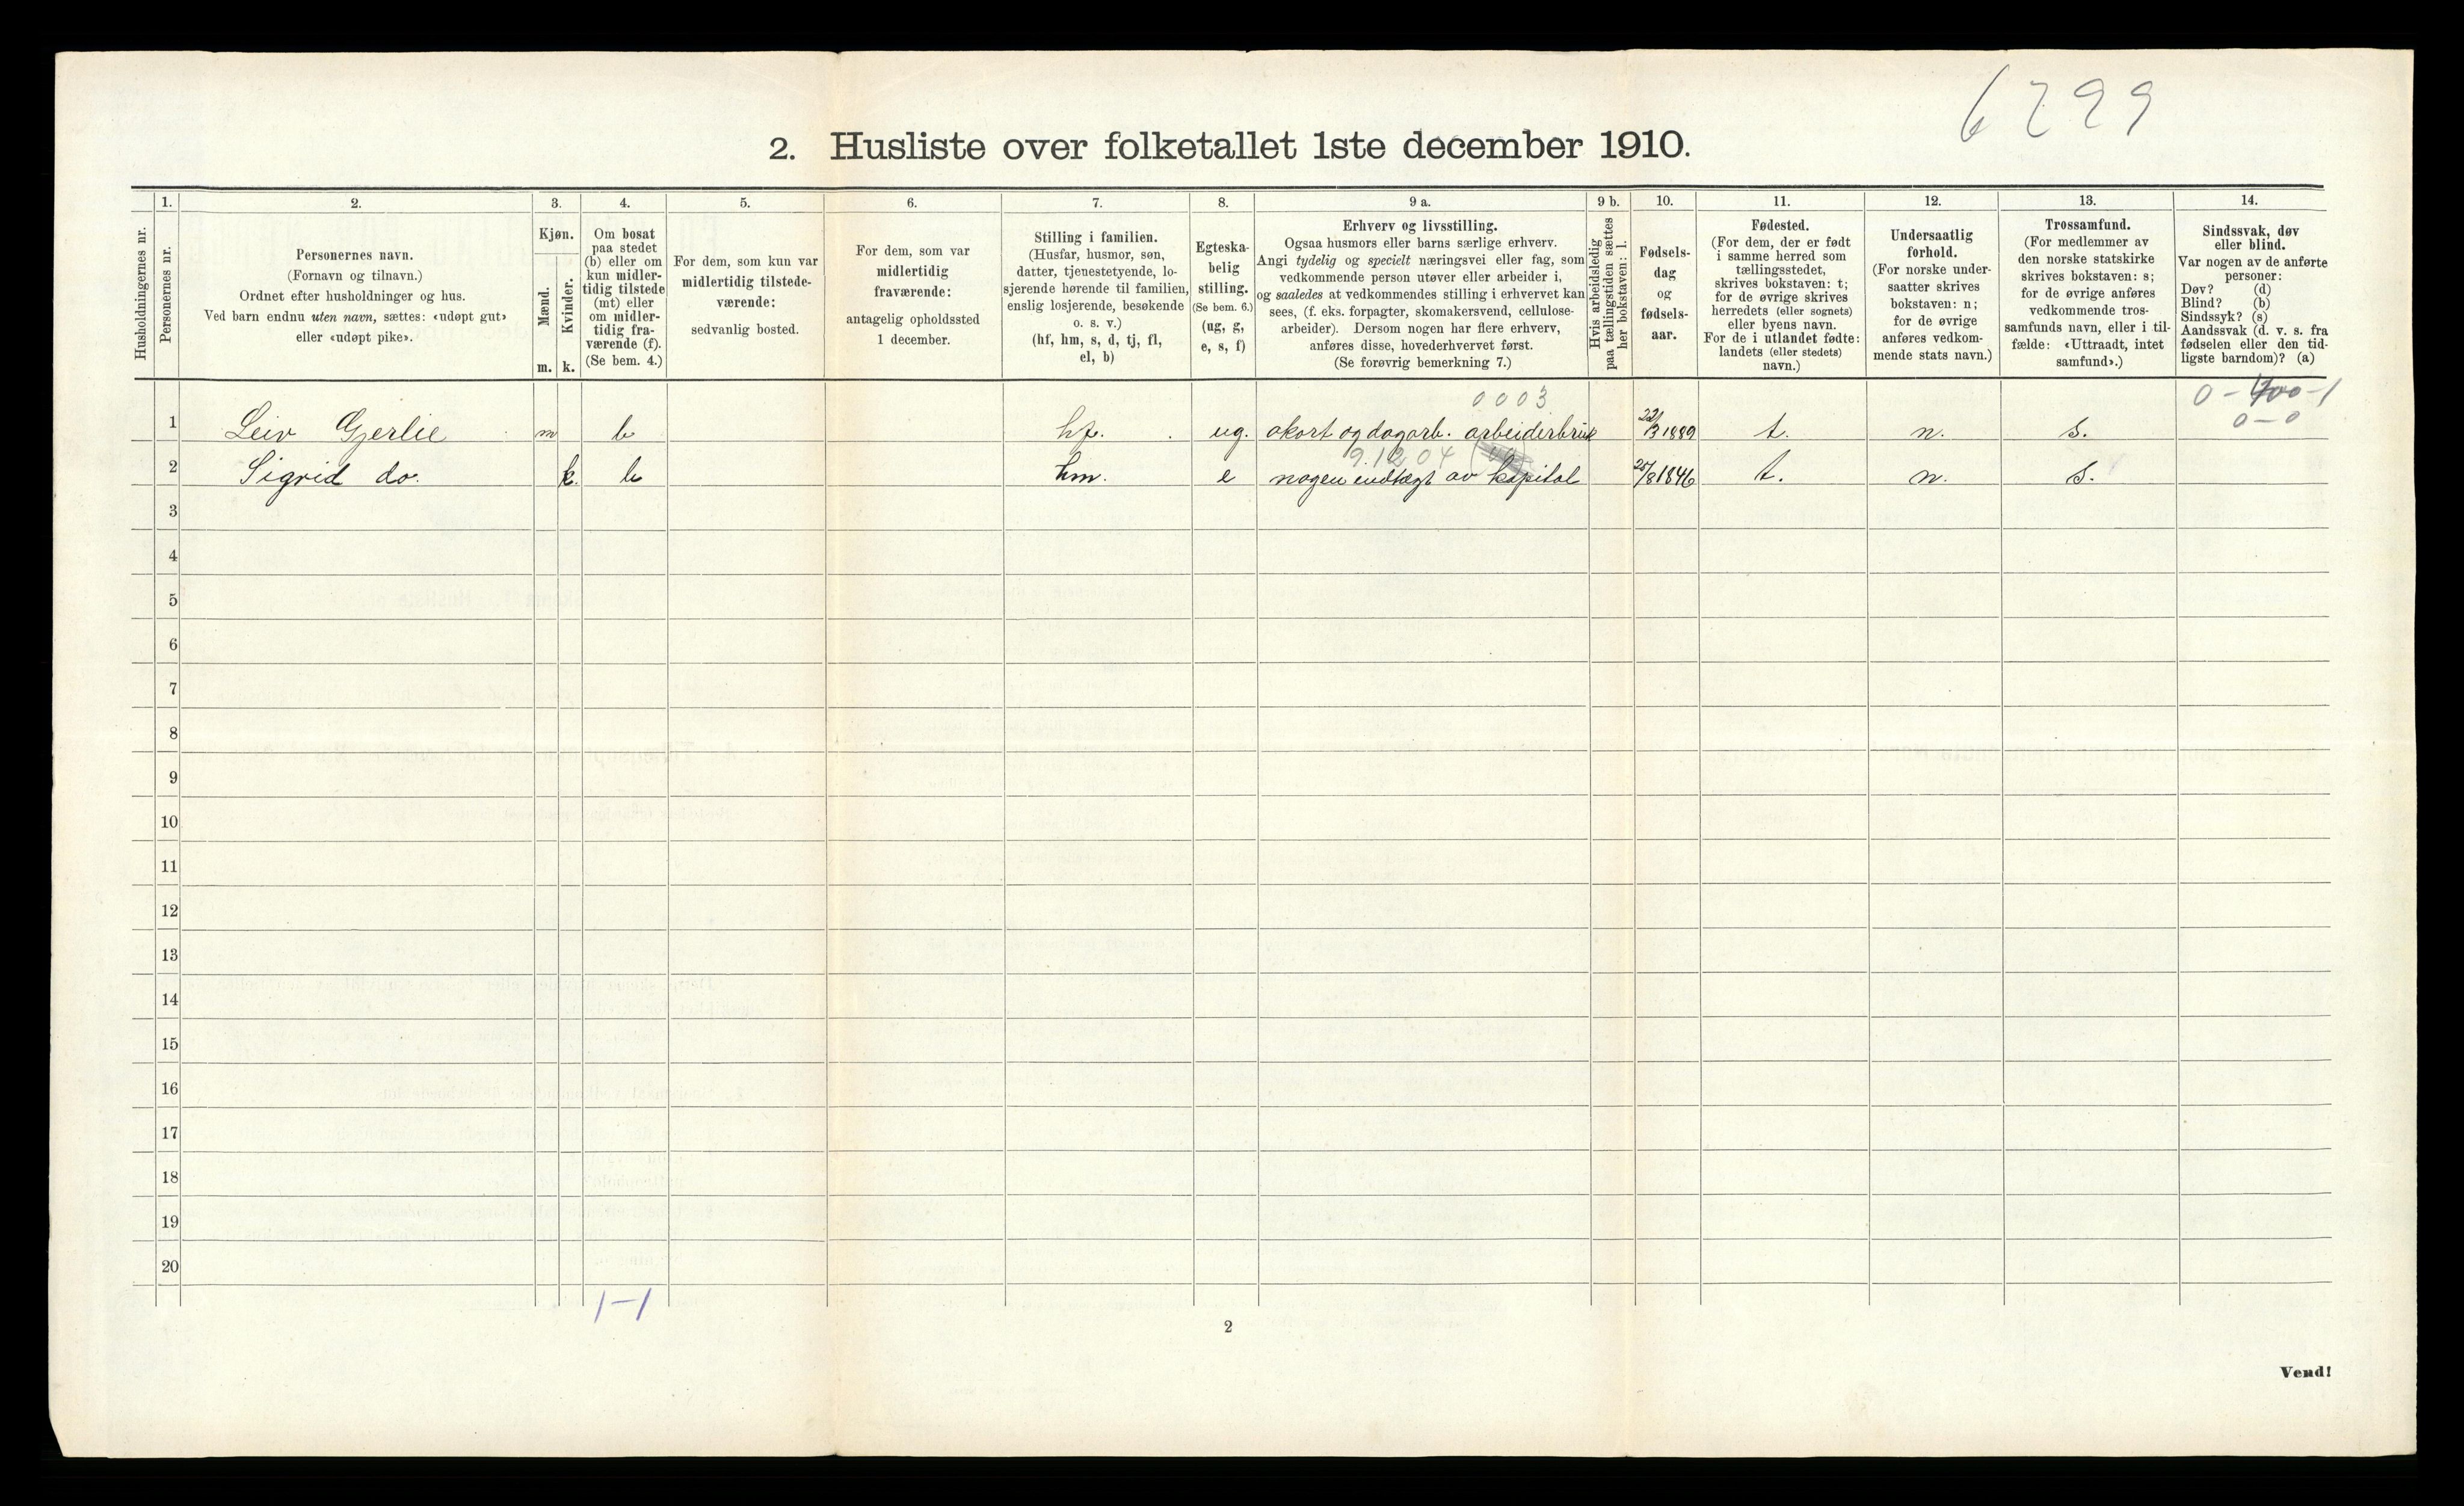 6299
2. Husliste over folketallet 1ste december 1910.
Husholdningernes nr.
1.
Personernes nr.
2.
Personernes navn.
(Fornavn og tilnavn.)
Ordnet efter husholdninger og hus.
Ved barn endnu uten navn, sættes: «udøpt gut»
eller «udøpt pike».
3.
Kjøn.
Mænd.
Kvinder.
m. k.
4.
Om bosat
paa stedet
(b) eller om
kun midler-
tidig tilstede
(mt) eller
om midler-
tidig fra-
værende (f).
(Se bem. 4.)
5.
For dem, som kun var
midlertidig tilstede-
værende:
sedvanlig bosted.
6.
For dem, som var
midlertidig
fraværende:
antagelig opholdssted
1 december.
7.
Stilling i familien.
(Husfar, husmor, søn,
datter, tjenestetyende, lo-
sjerende hørende til familien,
enslig losjerende, besøkende
o. s. v.)
(hf, hm, s, d, tj, fl,
el, b)
8.
Egteska-
belig
stilling.
(Se bem. 6.)
(ug, g,
e, s, f)
9 a.
Erhverv og livsstilling.
Ogsaa husmors eller barns særlige erhverv.
Angi tydelig og specielt næringsvei eller fag, som
vedkommende person utøver eller arbeider i,
og saaledes at vedkommendes stilling i erhvervet kan
sees, (f. eks. forpagter, skomakersvend, cellulose-
arbeider). Dersom nogen har flere erhverv,
anføres disse, hovederhvervet først.
(Se forøvrig bemerkning 7.)
9 b.
Hvis arbeidsledig
paa tællingstiden sættes
her bokstaven: l.
10.
Fødsels-
dag
og
fødsels-
aar.
11.
Fødested.
(For dem, der er født
i samme herred som
tællingsstedet,
skrives bokstaven: t;
for de øvrige skrives
herredets (eller sognets)
eller byens navn.
For de i utlandet fødte:
landets (eller stedets)
navn.)
12.
Undersaatlig
forhold.
(For norske under-
saatter skrives
bokstaven: n;
for de øvrige
anføres vedkom-
mende stats navn.)
13.
Trossamfund.
(For medlemmer av
den norske statskirke
skrives bokstaven: s;
for de øvrige anføres
vedkommende tros-
samfunds navn, eller i til-
fælde: «Uttraadt, intet
samfund».)
14.
Sindssvak, døv
eller blind.
Var nogen av de anførte
personer:
Døv? (d)
Blind? (b)
Sindssyk? (s)
Aandssvak (d. v. s. fra
fødselen eller den tid-
ligste barndom)? (a)
0003
0-0
1 Leiv Gjerlie m b hf. ug. akort og dagarb. arbeiderbruk 22/3 1889 t. n. s.
9.1204
2 Sigrid do. k. b hm. e nogen indtægt av kapital 25/8 1846 t. n. s.
3
4
5
6
7
8
9
10
11
12
13
14
15
16
17
18
19
20
1-1
2
Vend!